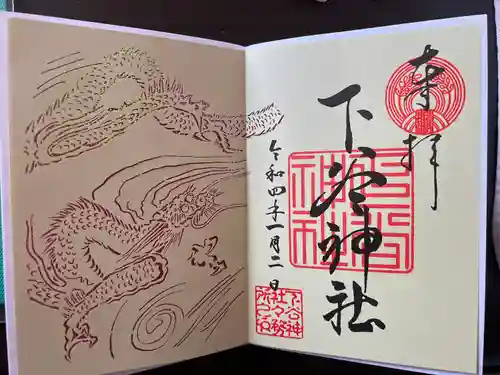 奉拝
下谷神社
令和四年一月二日
下谷神
社々務
所之印